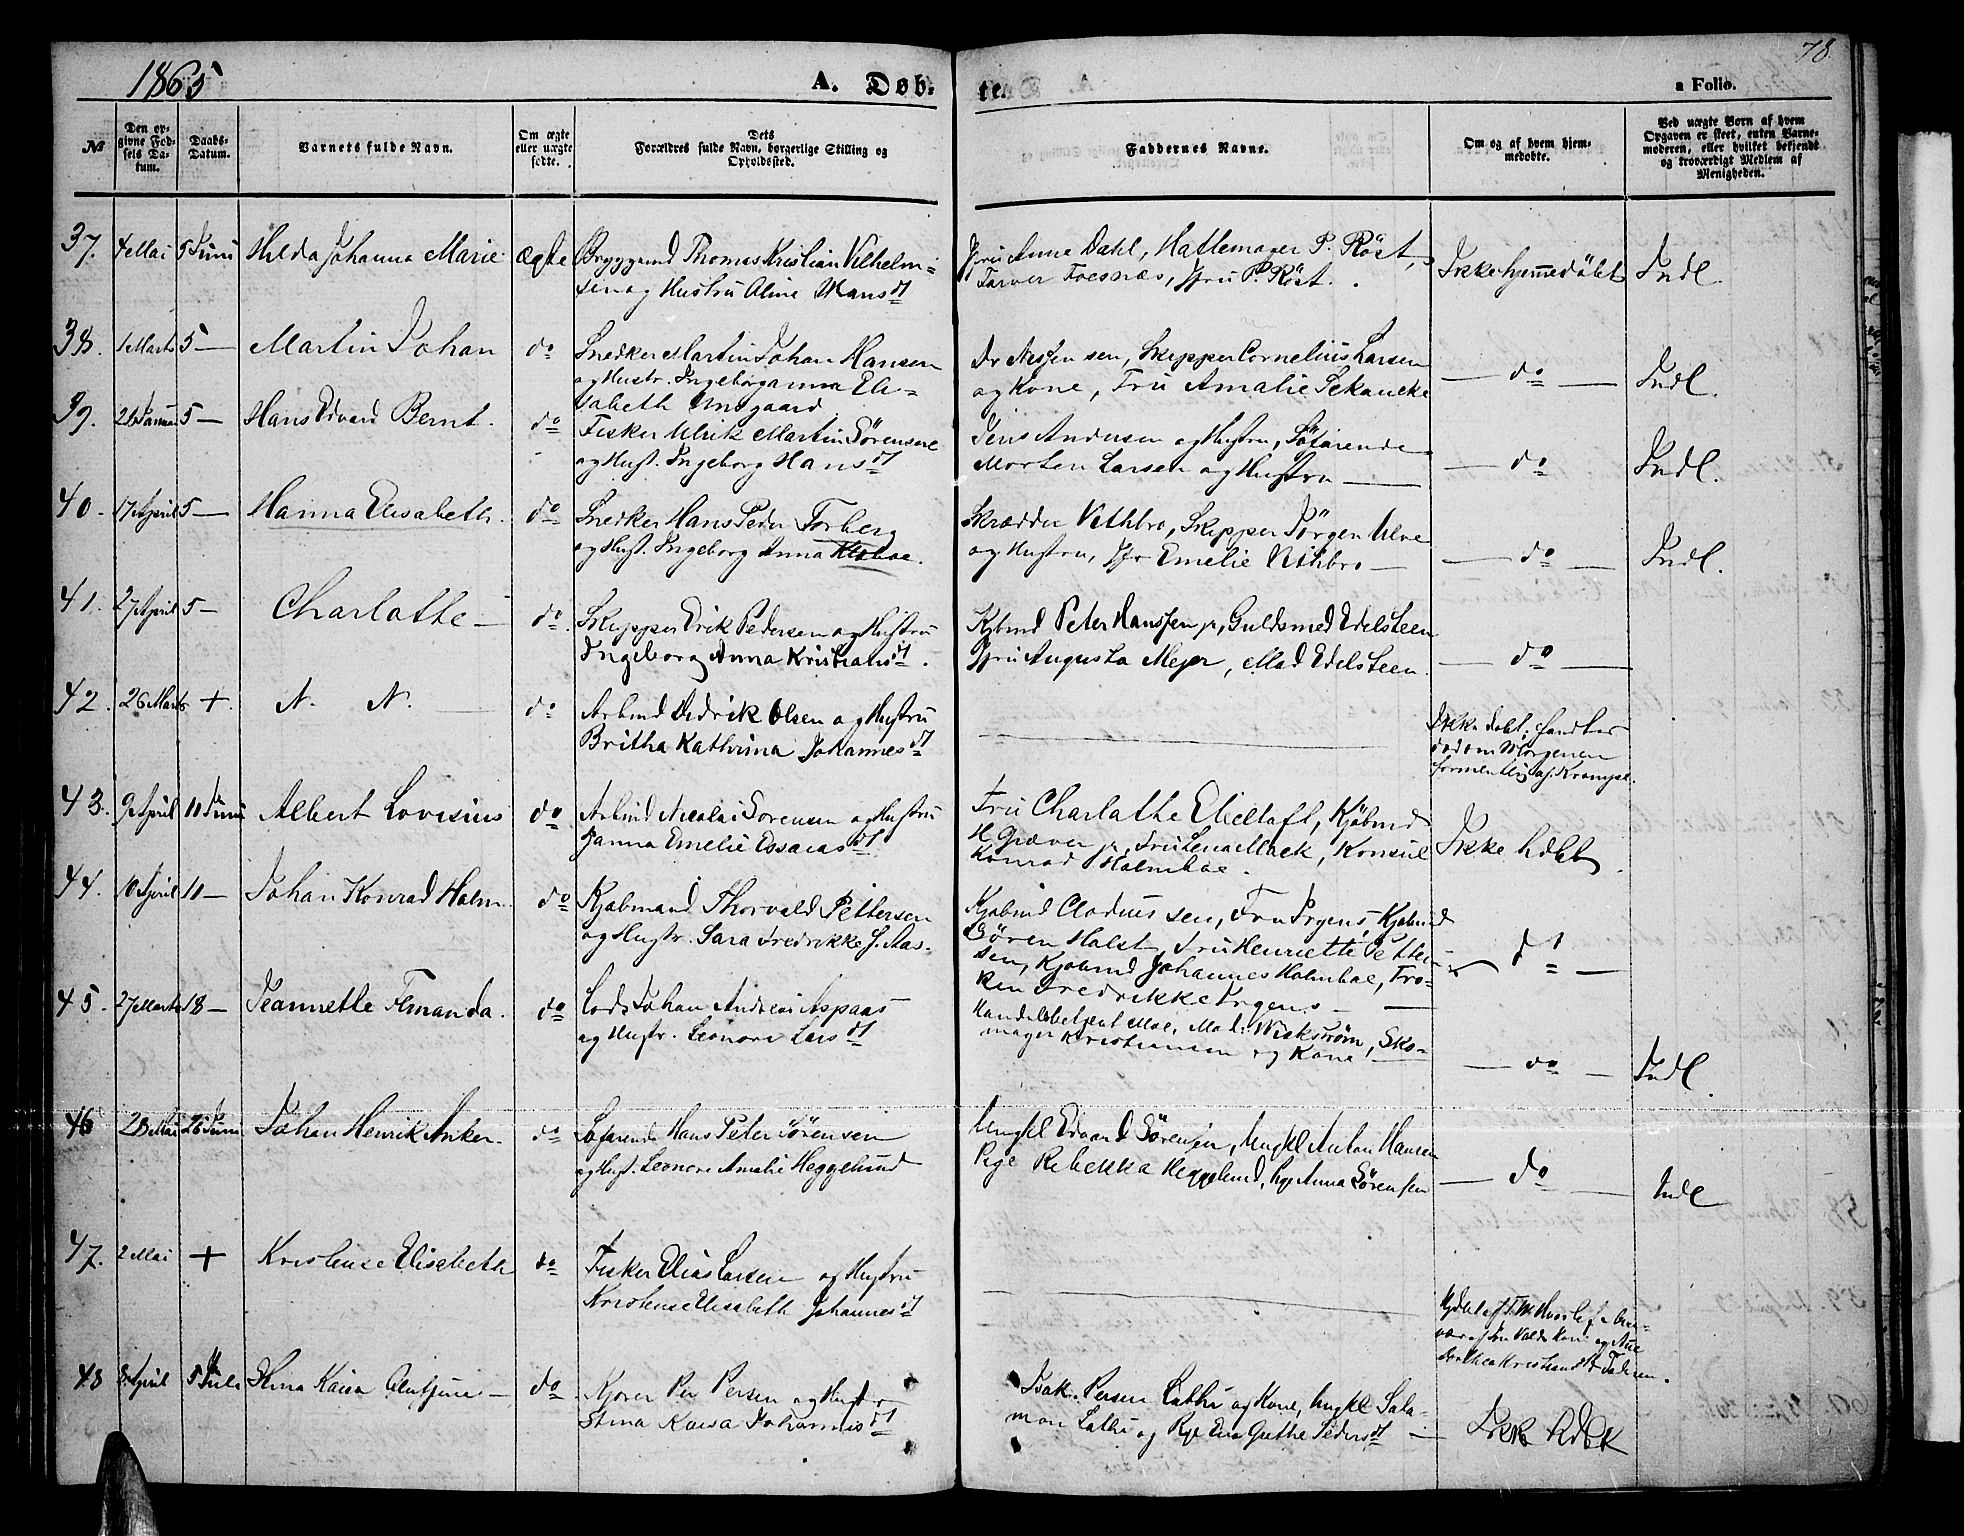 1865
A. Døb-
te.
78
a Folio.
№
Den op-
givne Fød-
sels Da-
tum.
Daabs-
Datum.
Barnets fulde Navn.
Om ægte
eller uægte
fødte.
Dets
Forældres fulde Navn, borgerlige Stilling og
Opholdsted.
Faddernes Navne.
Om og af hvem hjem-
medøbte.
Ved uægte Børn af hvem
Opgaven er skeet, enten Barne-
moderen, eller hvilket bekjendt
og troværdigt Medlem af
Menigheden.
37. 4 Mai 5 Juni Hilda Johanna Marie ægte Bryggemd Thomas Kristian Vilhelm-
sen og Hustru Aline Mons dt
Jfru Anne Dahl, Hattemager P. Röst,
Farver Foesnæs, Jfru P. Röst.
Ikke hjemmedöbt Indl.
38. 1 Marts 5 — Martin Johan do Snedker Martin Johan Hansen
og Hustr. Ingeborganna Eli-
sabeth
Skipper Cornelius Larsen
og Kone, Fru Amalie
— do — Indl.
39. 26 Januar 5 — Hans Edvard Bernt. do Fisker Ulrik Martin Sörensen
og Hust. Ingeborg Hans dt
Jens Andersen og Hustru, Söfarende
Morten Larsen og Hustru —
— do — Indl.
40. 17 April 5 — Hanna Elisabeth. do Snedker Hans Peder Forberg
og Hust. Ingeborg Anna
Skrædder Vethbro, Skipper Jörgen
og Hustru, Jfr Emelie Vethbro —
— do — Indl.
41. 27 April 5 — Charlothe — do. Skipper Erik Pedersen og Hustru
Ingeborg Anna Kristians dt.
Kjbmd Peter Hanssen jr, Guldsmed Edelsteen
Jfru Augusta Mejer, Mad Edelsteen.
— do —
42. 26 Marts +. N. N. — do Arbmd Didrik Olsen og Hustru
Britha Kathrina Johannes dt
Ikke döbt; fandtes
död om Morgenen
formentlig af Krampe.
43. 9 April 11 Juni Albert Lovisius do Arbmd Nicolai Sorensen og Hustru
Janna Emelie Essaias dt
Fru Charlothe Ebeltoft, Kjöbmd
H. Græver jr, Fru Lena Mack, Konsul
Konrad Holmboe.
Ikke hdöbt
44. 10 April 11 — Johan Konrad Holm. do Kjøbmand Thorvald Pettersen
og Hustr. Sara Fredrikke f. Aas-
Kjøbmd Clodius sen, Fru Irgens, Kjøbmd
Sören Holst, Fru Henriette Petter-
sen, Kjøbmd Johannes Holmboe, Frö-
ken Fredrikke Irgens —
— do —
45. 27 Marts 18 — Jeannette Fernanda. do Lods Johan Andreas Aspaas
og Hustr. Leonora Lars dt
Handelsbetjent Moe, Mad: Wickstrøm, Sko-
mager Kristiansen og Kone —
— do — Indl.
46 28 Mai 26 Juni Johan Henrik Anker. do Söfarende Hans Peter Sörensen
og Hust. Leonore Amalie Heggelund
Ungkl Edvard Sörensen, Ungkl Anton Hansen
Pige Rebekka Heggelund, Pige Anna Sörensen
— do — Indl
47. 2 Mai + Kristense Elisabeth do Fisker Elias Larsen og Hustru
Kristense Elisabeth Johannes dt
48 8 April 5 Juli Stina Kaisa — do Per Persen og Hustr
Stina Kaisa Johannis dt
Isak Persen Lathi og Kone, Ungkl Sala-
mon Lathi og Pige Eva Grethe Peders dt —
Ikke hdöbt